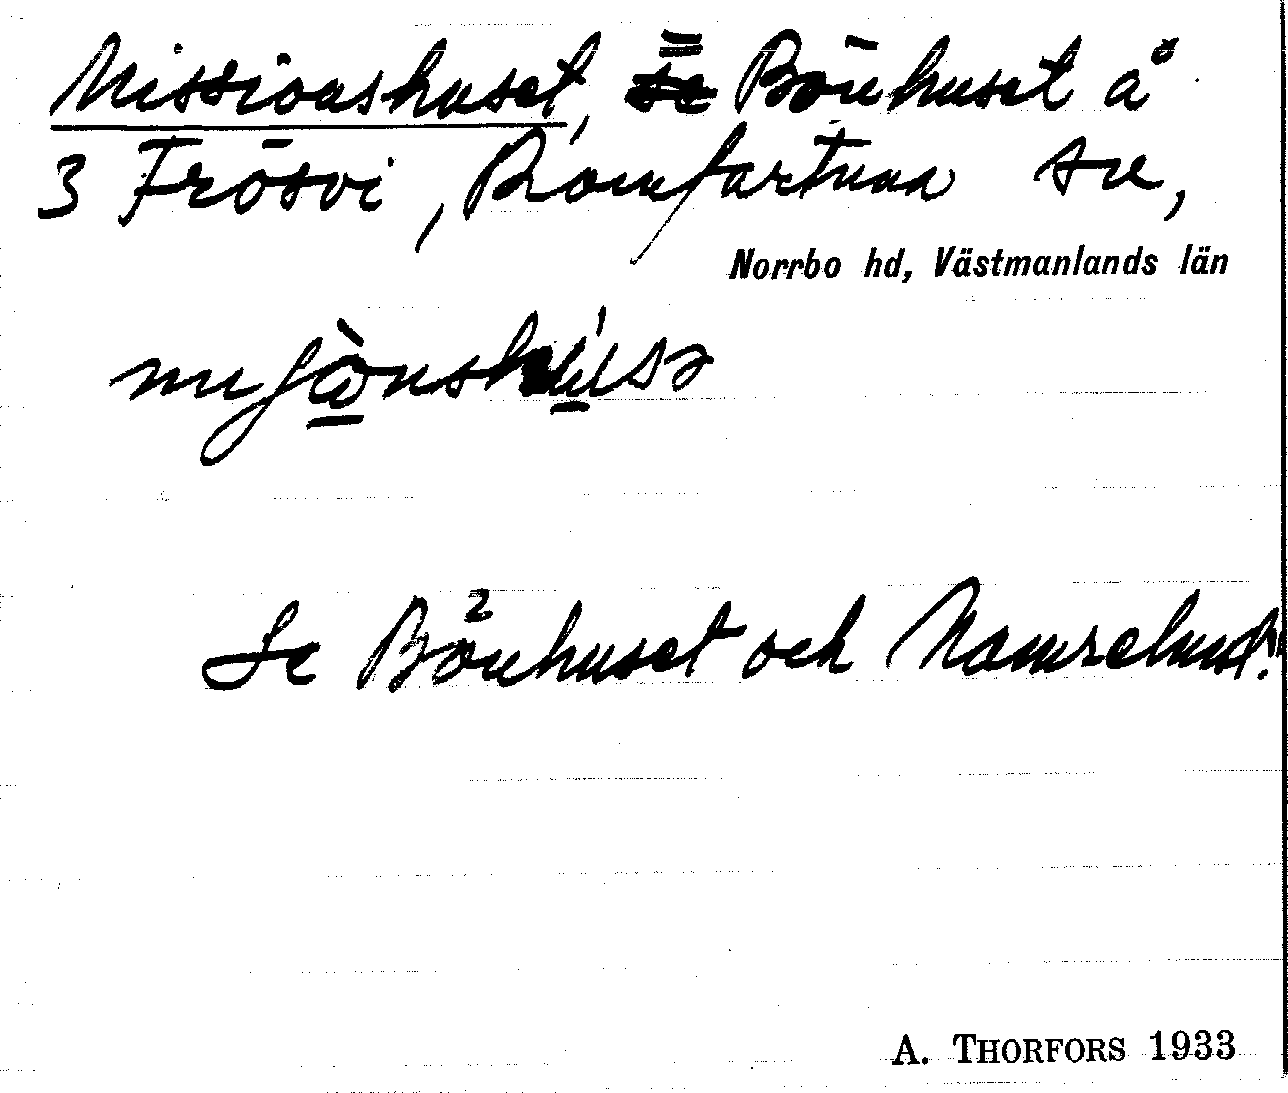 Missionshuset, = Bönhuset å
3 Frösvi, Romfartuna sn,
Norrbo hd, Västmanlands län
Se Bönhuset och Namrelund.
A. THORFORS 1933